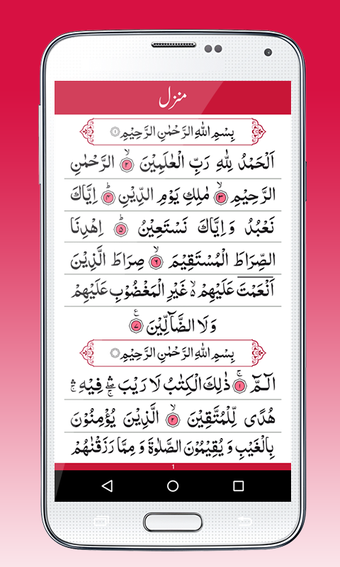 منزل
بِسْمِ اللهِ الرَّحْمٰنِ الرَّحِيْمِ ۝۱
اَلْحَمْدُ لِلّٰهِ رَبِّ الْعٰلَمِيْنَ ۝۲ الرَّحْمٰنِ
الرَّحِيْمِ ۝۳ مٰلِكِ يَوْمِ الدِّيْنِ ۝۴ اِيَّاكَ
نَعْبُدُ وَ اِيَّاكَ نَسْتَعِيْنُ ۝۵ اِهْدِنَا
الصِّرَاطَ الْمُسْتَقِيْمَ ۝۶ صِرَاطَ الَّذِيْنَ
اَنْعَمْتَ عَلَيْهِمْ غَيْرِ الْمَغْضُوْبِ عَلَيْهِمْ
وَلَا الضَّآلِّيْنَ ۝۷
بِسْمِ اللهِ الرَّحْمٰنِ الرَّحِيْمِ
الٓمّٓ ۝۱ ذٰلِكَ الْكِتٰبُ لَا رَيْبَ ۛ فِيْهِ ۛ
هُدًى لِّلْمُتَّقِيْنَ ۝۲ الَّذِيْنَ يُؤْمِنُوْنَ
بِالْغَيْبِ وَ يُقِيْمُوْنَ الصَّلٰوةَ وَ مِمَّا رَزَقْنٰهُمْ
1